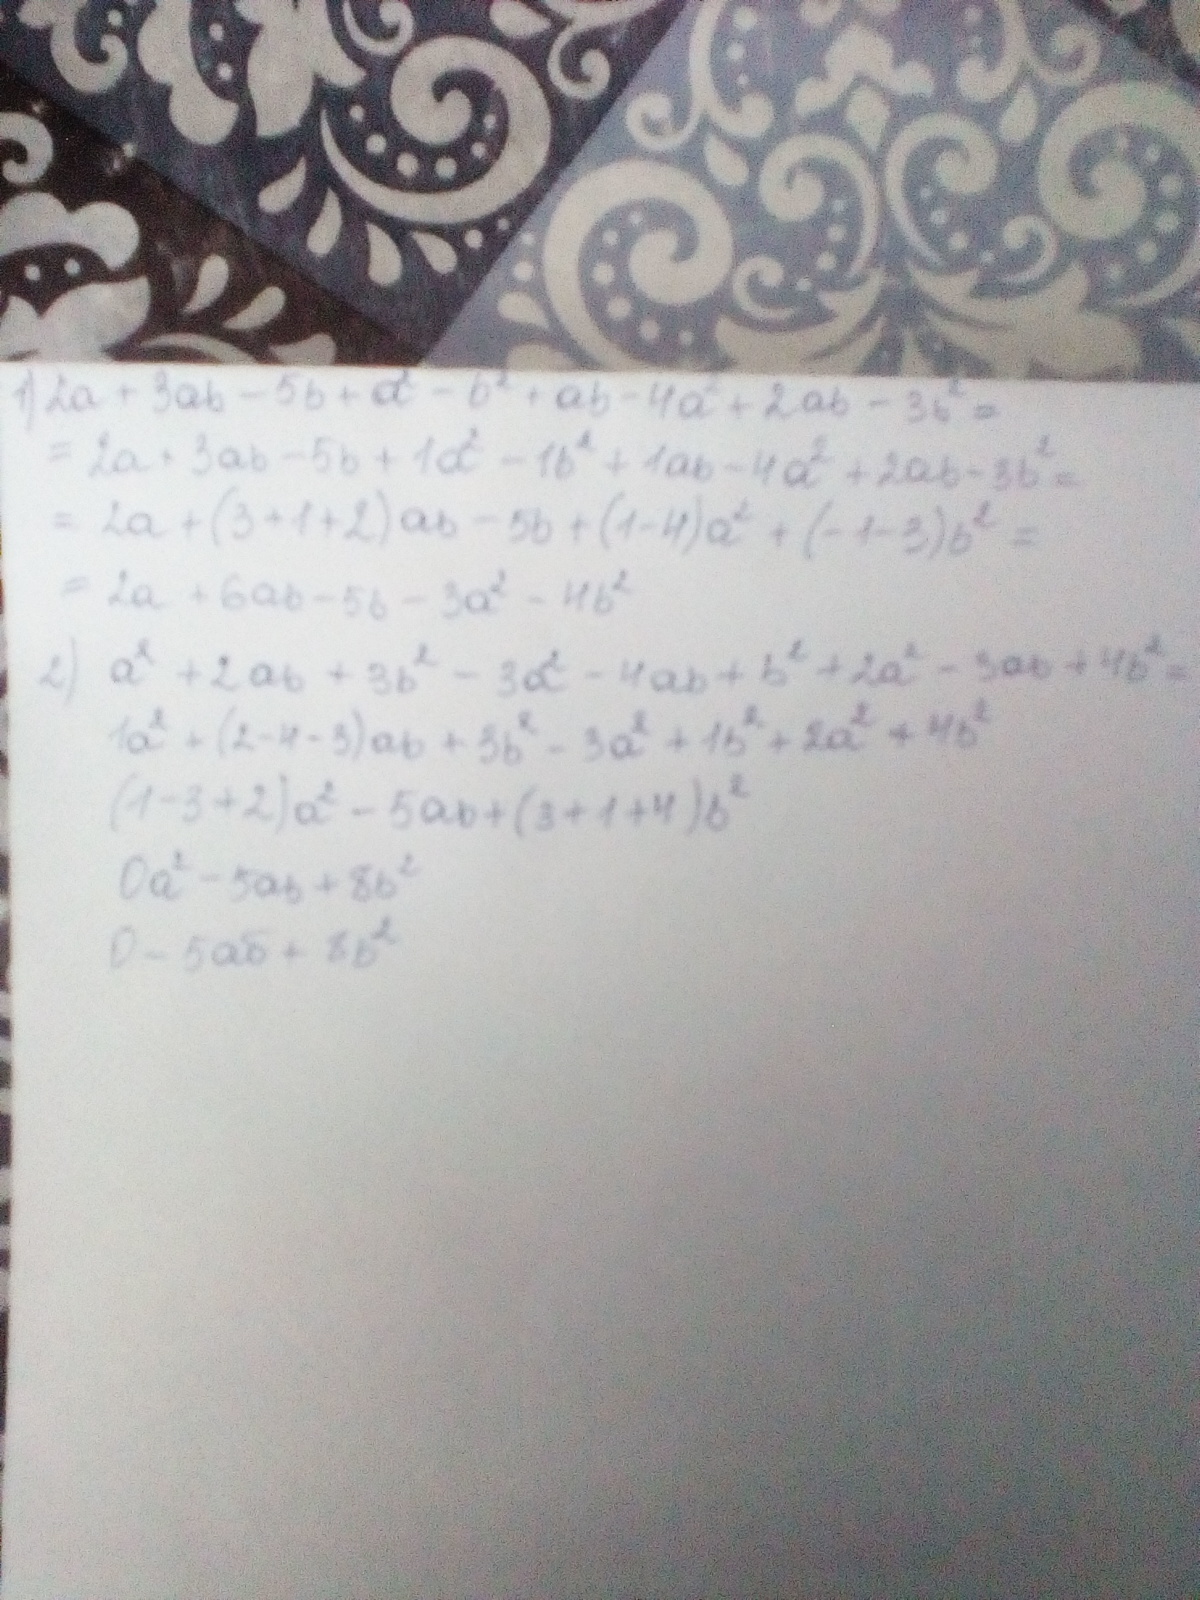 1) 2a + 3ab - 5b + a² - b² + ab - 4a² + 2ab - 3b² =
= 2a + 3ab - 5b + 1a² - 1b² + 1ab - 4a² + 2ab - 3b² =
= 2a + (3+1+2)ab - 5b + (1-4)a² + (-1-3)b² =
= 2a + 6ab - 5b - 3a² - 4b²
2) a² + 2ab + 3b² - 3a² - 4ab + b² + 2a² - 3ab + 4b² =
1a² + (2-4-3)ab + 3b² - 3a² + 1b² + 2a² + 4b²
(1-3+2)a² - 5ab + (3+1+4)b²
0a² - 5ab + 8b²
0 - 5ab + 8b²